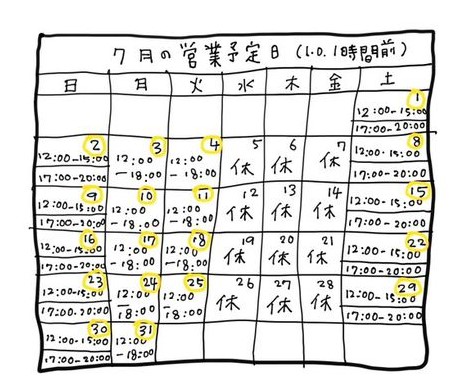 7月の営業予定日(L.O.1時間前)
日 月 火 水 木 金 土
1
12:00-15:00
17:00-20:00
2 3 4 5 6 7 8
12:00-15:00 12:00-18:00 12:00-18:00 休 休 休 12:00-15:00
17:00-20:00 17:00-20:00
9 10 11 12 13 14 15
12:00-15:00 12:00-18:00 12:00-18:00 休 休 休 12:00-15:00
17:00-20:00 17:00-20:00
16 17 18 19 20 21 22
12:00-15:00 12:00-18:00 12:00-18:00 休 休 休 12:00-15:00
17:00-20:00 17:00-20:00
23 24 25 26 27 28 29
12:00-15:00 12:00-18:00 12:00-18:00 休 休 休 12:00-15:00
17:00-20:00 17:00-20:00
30 31
12:00-15:00 12:00-18:00
17:00-20:00